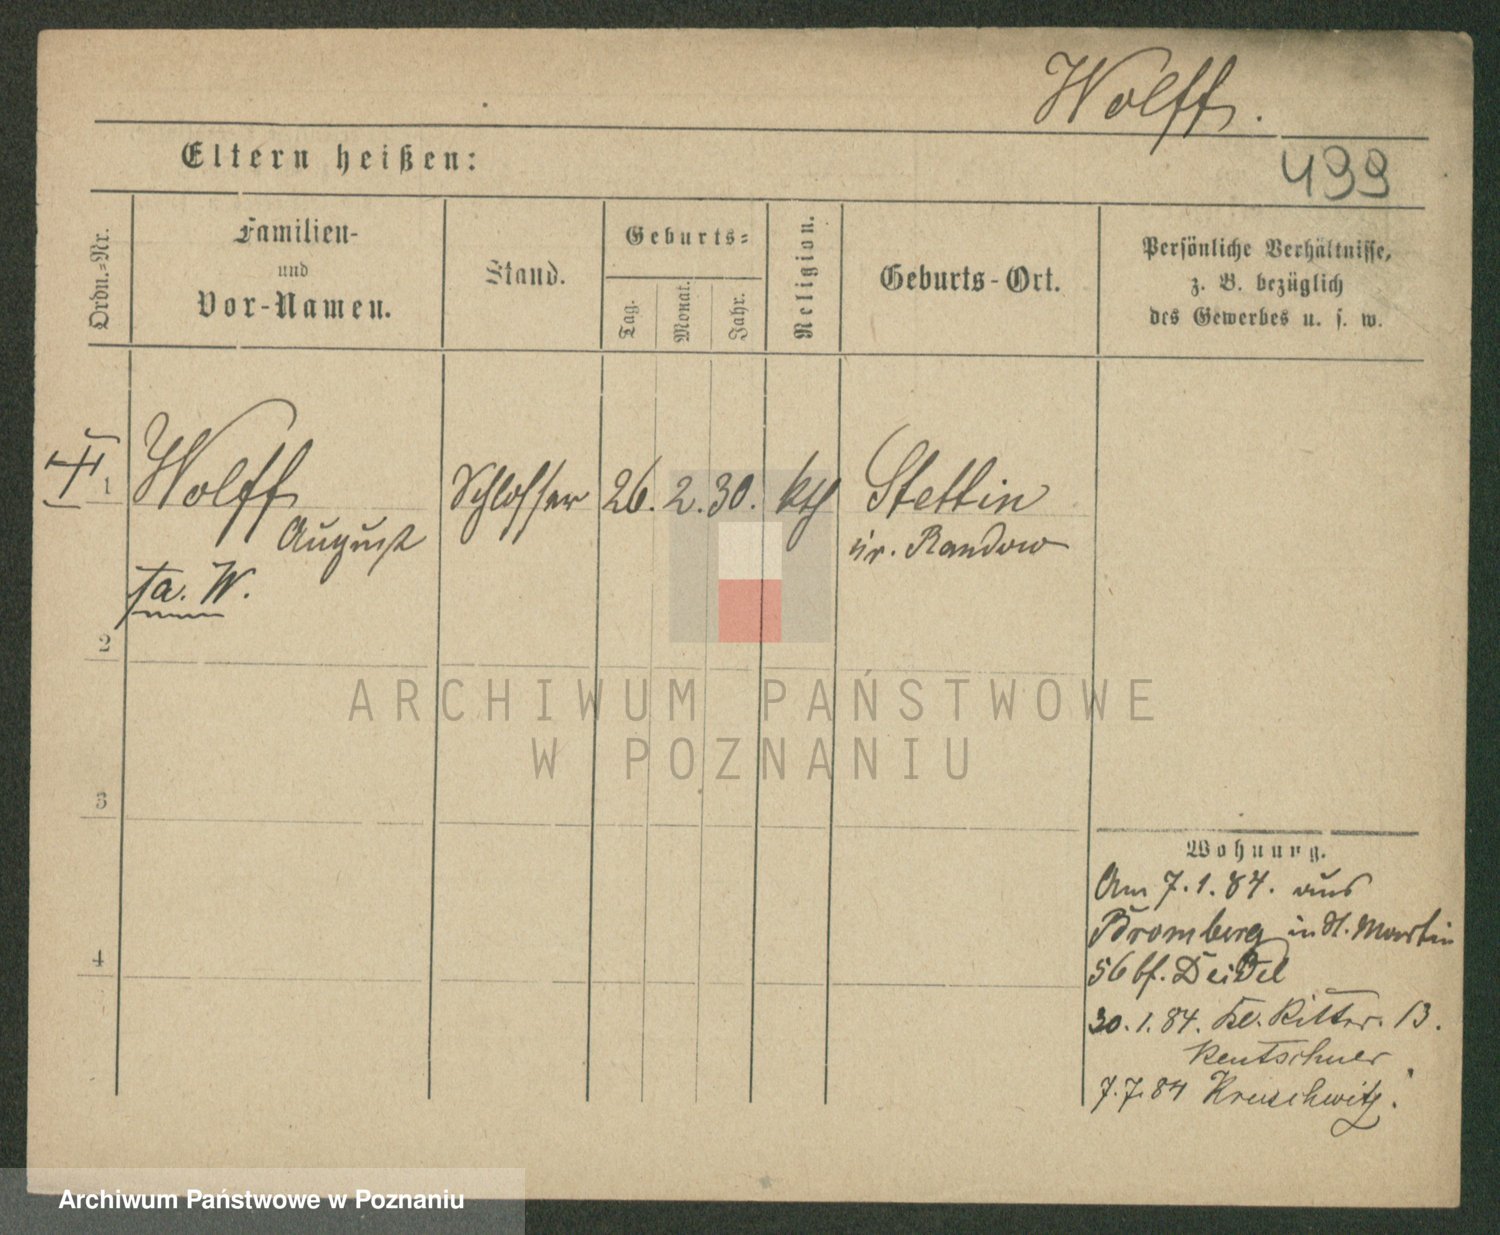 Wolff.
499
Eltern heißen:
Ordn.=Nr.
Familien-
und
Vor-Namen.
Stand.
Geburts=
Tag.
Monat.
Jahr.
Religion.
Geburts-Ort.
Persönliche Verhältnisse,
z. B. bezüglich
des Gewerbes u. s. w.
1 Wolff Schlosser 26. 2. 30. kth Stettin
August
Kr. Randow
fa. W.
2
ARCHIWUM PAŃSTWOWE
W POZNANIU
3
Wohnung.
Am 7.1.84. aus
Bromberg in St. Martin
4
56 bf. Deidel
30.1.84. Kl. Ritter. 13.
Rentschner
7.7.84 Kruschwitz.
Archiwum Państwowe w Poznaniu